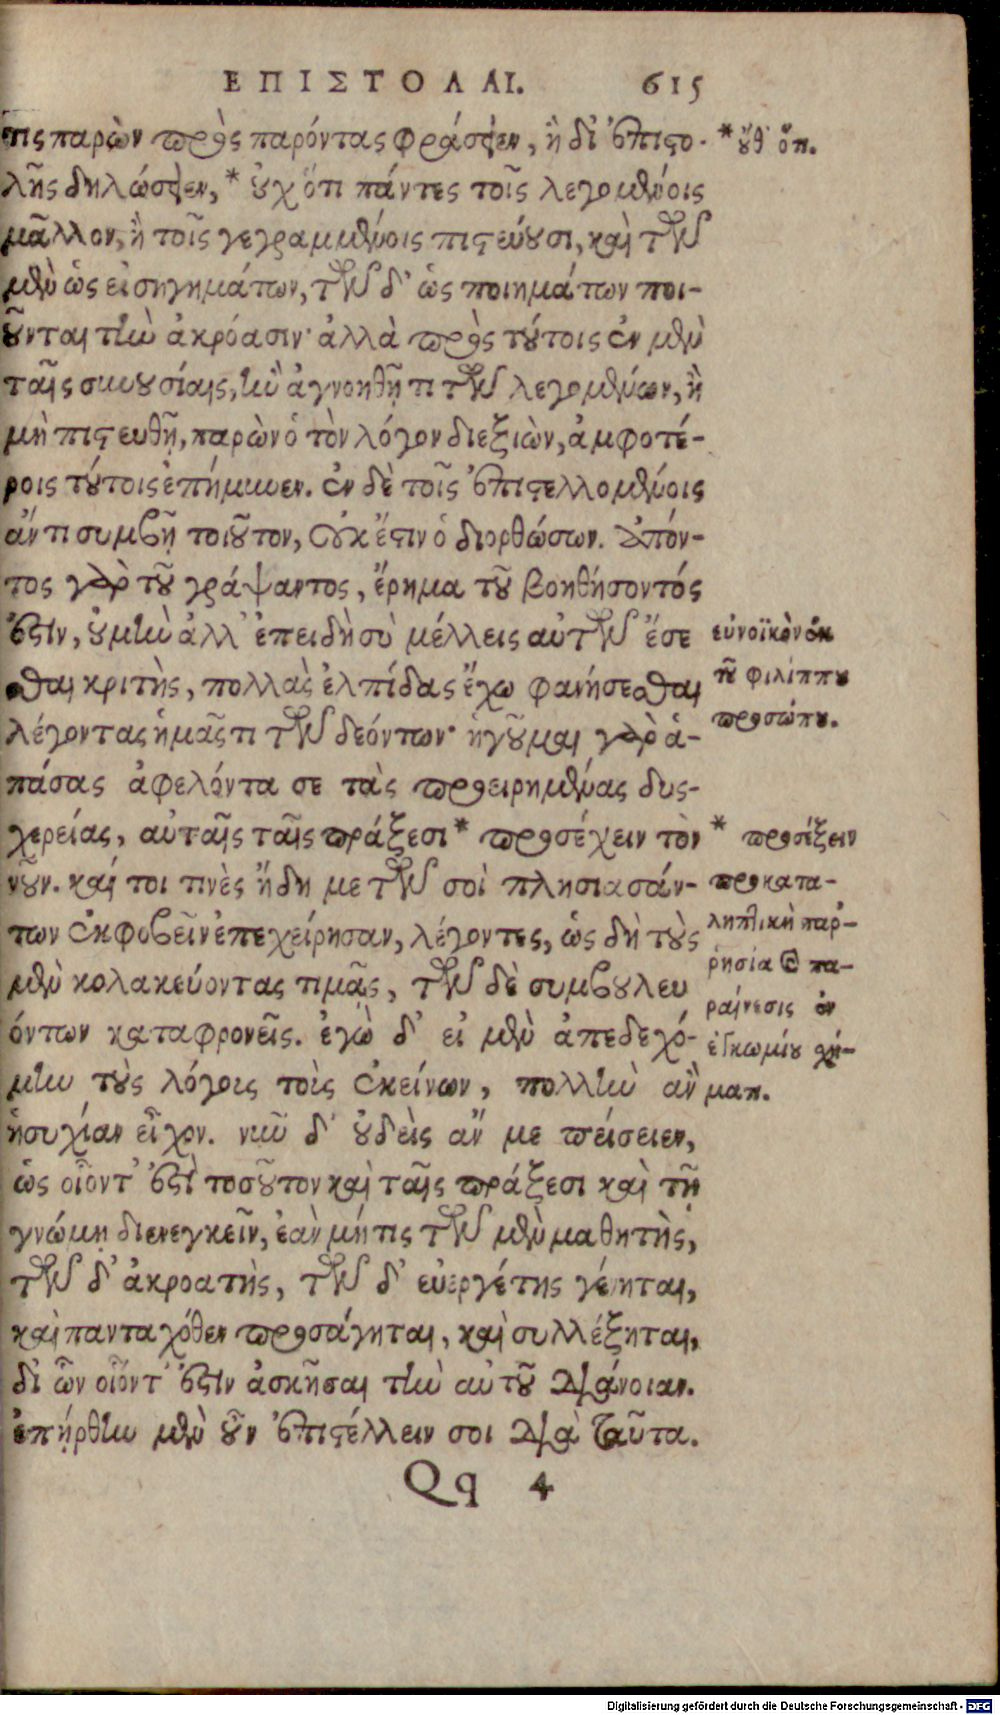 ΕΠΙΣΤΟΛΑΙ. 615
τις παρὼν πρὸς παρόντας φράσειεν, ἢ δι' ἐπιστο- * οὔθ' ὅτι.
λῆς δηλώσειεν, * οὐχ ὅτι πάντες τοῖς λεγομένοις
μᾶλλον, ἢ τοῖς γεγραμμένοις πιστεύουσι, καὶ τῶν
μὲν ὡς εἰσηγημάτων, τῶν δ' ὡς ποιημάτων ποι-
οῦνται τὴν ἀκρόασιν· ἀλλὰ πρὸς τούτοις ἐν μὲν
ταῖς συνουσίαις, ἢν ἀγνοηθῇ τι τῶν λεγομένων, ἢ
μὴ πιστευθῇ, παρὼν ὁ τὸν λόγον διεξιὼν, ἀμφοτέ-
ροις τούτοις ἐπήμυνεν. ἐν δὲ τοῖς ἐπιστελλομένοις
ἄν τι συμβῇ τοιοῦτον, οὐκ ἔστιν ὁ διορθώσων. ἀπόν-
τος γὰρ τοῦ γράψαντος, ἔρημα τοῦ βοηθήσοντός
ἐστιν, οὐ μὴν ἀλλ' ἐπειδὴ σὺ μέλλεις αὐτῶν ἔσε
σθαι κριτὴς, πολλὰς ἐλπίδας ἔχω φανήσεσθαι
λέγοντας ἡμᾶς τι τῶν δεόντων· ἡγοῦμαι γὰρ ἁ-
πάσας ἀφελόντα σε τὰς προειρημένας δυς-
χερείας, αὐταῖς ταῖς πράξεσι * προσέχειν τὸν
νοῦν. καί τοι τινὲς ἤδη με τῶν σοὶ πλησιασάν-
των ἐκφοβεῖν ἐπεχείρησαν, λέγοντες, ὡς δὴ τοὺς
μὲν κολακεύοντας τιμᾷς, τῶν δὲ συμβουλευ
όντων καταφρονεῖς. ἐγὼ δ' εἰ μὲν ἀπεδεχό-
μην τοὺς λόγοις τοὶς ἐκείνων, πολλὴν ἂν
ἡσυχίαν εἶχον. νῦν δ' οὐδεὶς ἄν με πείσειεν,
ὡς οἷοντ' ἐστὶ τοσοῦτον καὶ ταῖς πράξεσι καὶ τῇ
γνώμῃ διενεγκεῖν, ἐὰν μή τις τῶν μὲν μαθητὴς,
τῶν δ' ἀκροατὴς, τῶν δ' εὐεργέτης γένηται,
καὶ πανταχόθεν προσάγηται, καὶ συλλέξηται,
δι' ὧν οἷόντ' ἐστὶν ἀσκῆσαι τὴν αὑτοῦ διάνοιαν.
ἐπήρθην μὲν οὖν ἐπιστέλλειν σοι διὰ ταῦτα.
Qq 4
εὐνοϊκὸν ἐκ
τῦ φιλίππου
προσώπου.
* προσέξειν
προκατα-
ληπτικὴ παρ-
ρησία καὶ πα-
ραίνεσις ἐν
ἐγκωμίου σχή-
ματι.
Digitalisierung gefördert durch die Deutsche Forschungsgemeinschaft - DFG